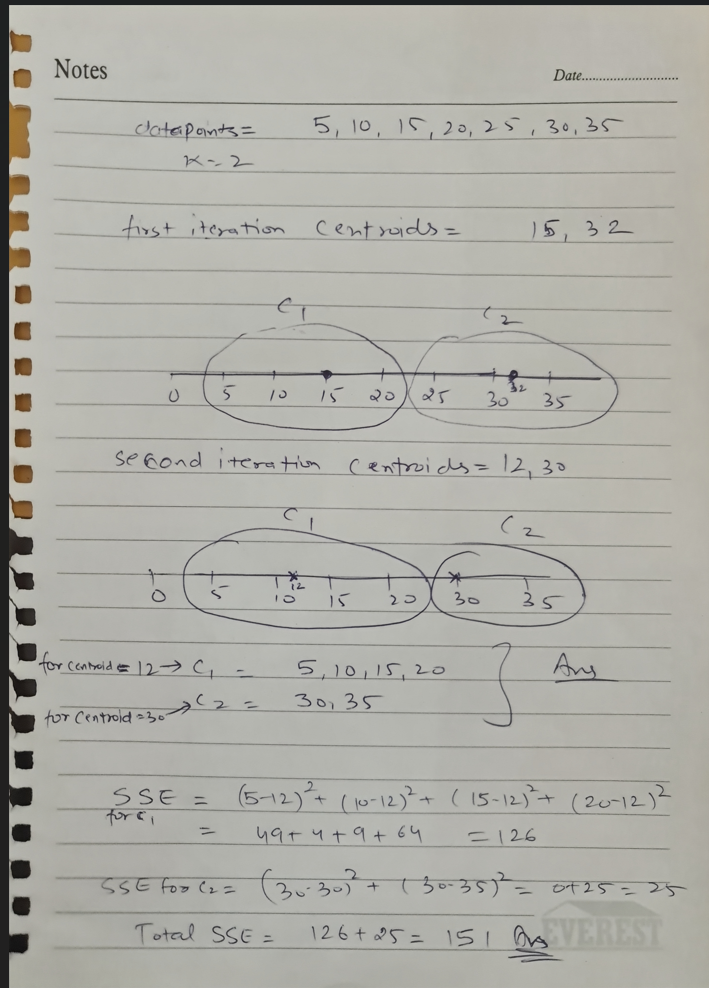 Notes
Date
datapoints = 5, 10, 15, 20, 25, 30, 35
K = 2
first iteration Centroids = 15, 32
C1 C2
0 5 10 15 20 25 30 32 35
second iteration Centroids = 12, 30
C1 C2
0 5 10 12 15 20 30 35
for centroid = 12 → C1 = 5, 10, 15, 20
Ans
for Centroid = 30 → C2 = 30, 35
SSE for C1 = (5-12)² + (10-12)² + (15-12)² + (20-12)²
= 49 + 4 + 9 + 64 = 126
SSE for C2 = (30-30)² + (30-35)² = 0+25 = 25
Total SSE = 126 + 25 = 151 Ans
EVEREST